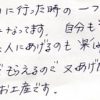 に行った時の一つ
なってます。自分も
人にあげるのも楽
もらえるので又あげた
お土産です。